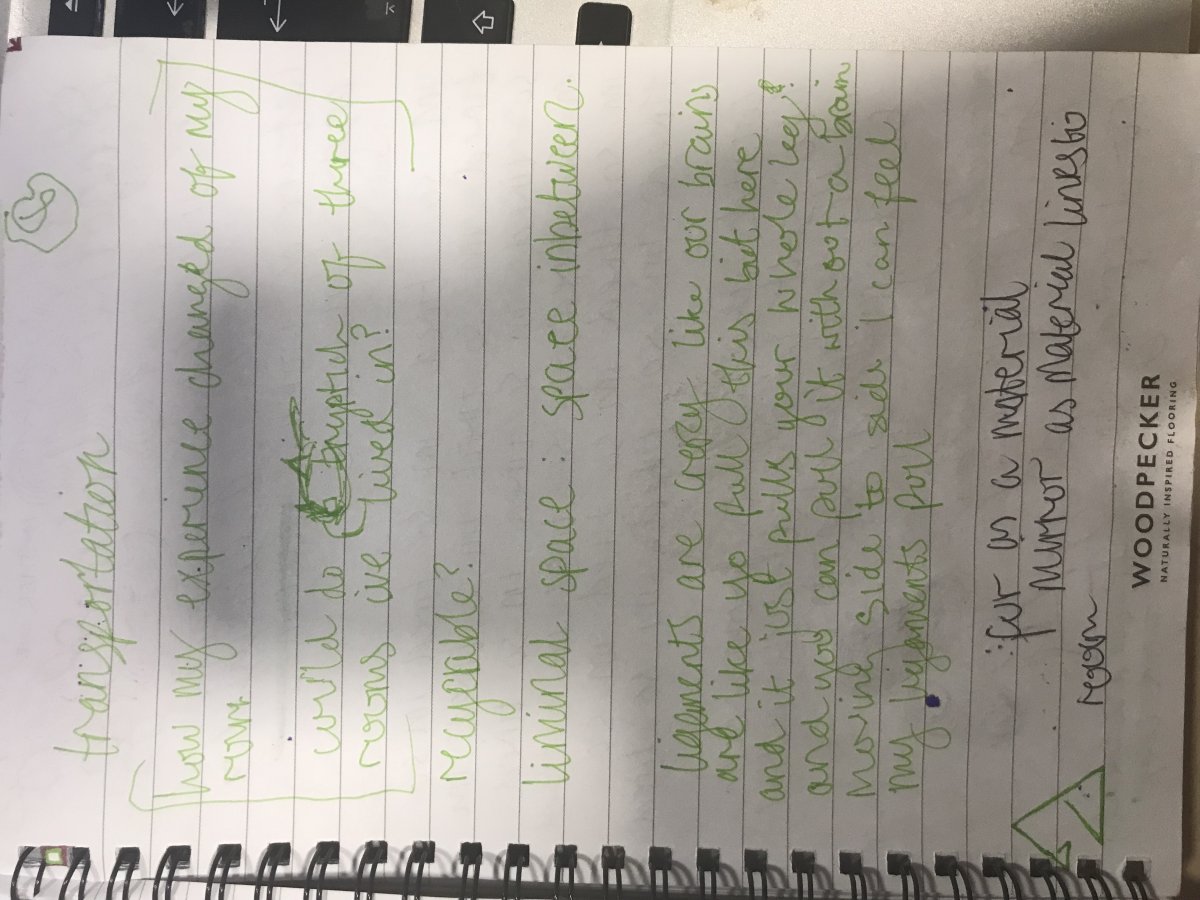 transportation
how my experience changed of my
room
could do A tryptich of three
rooms ive lived in?
recyclable?
liminal space : space inbetween.
ligaments are crazy like our brains
are like yo pull this bit here
and it just pulls your whole leg!
and you can pull it with out a brain
moving side to side i can feel
my lugaments pull
fur as a material
mirror as material links bio
region
WOODPECKER
NATURALLY INSPIRED FLOORING